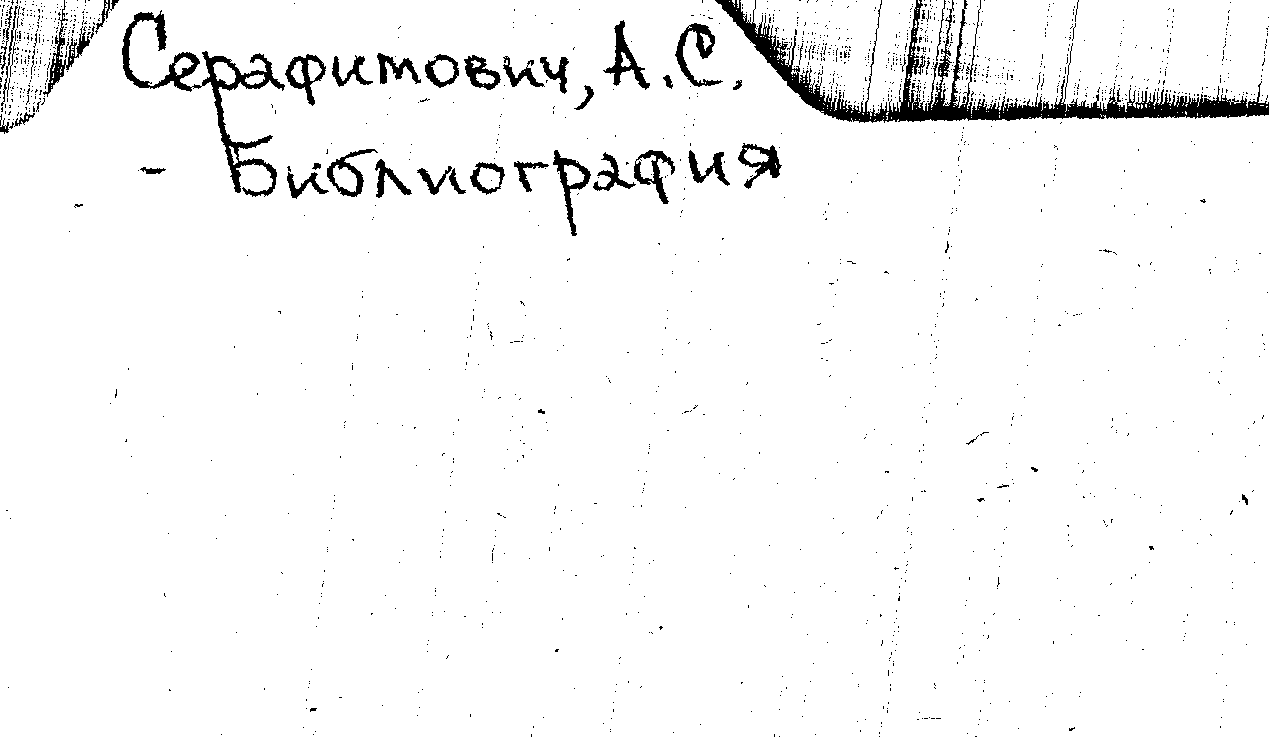 Серафимович, А.С.
- Библиография